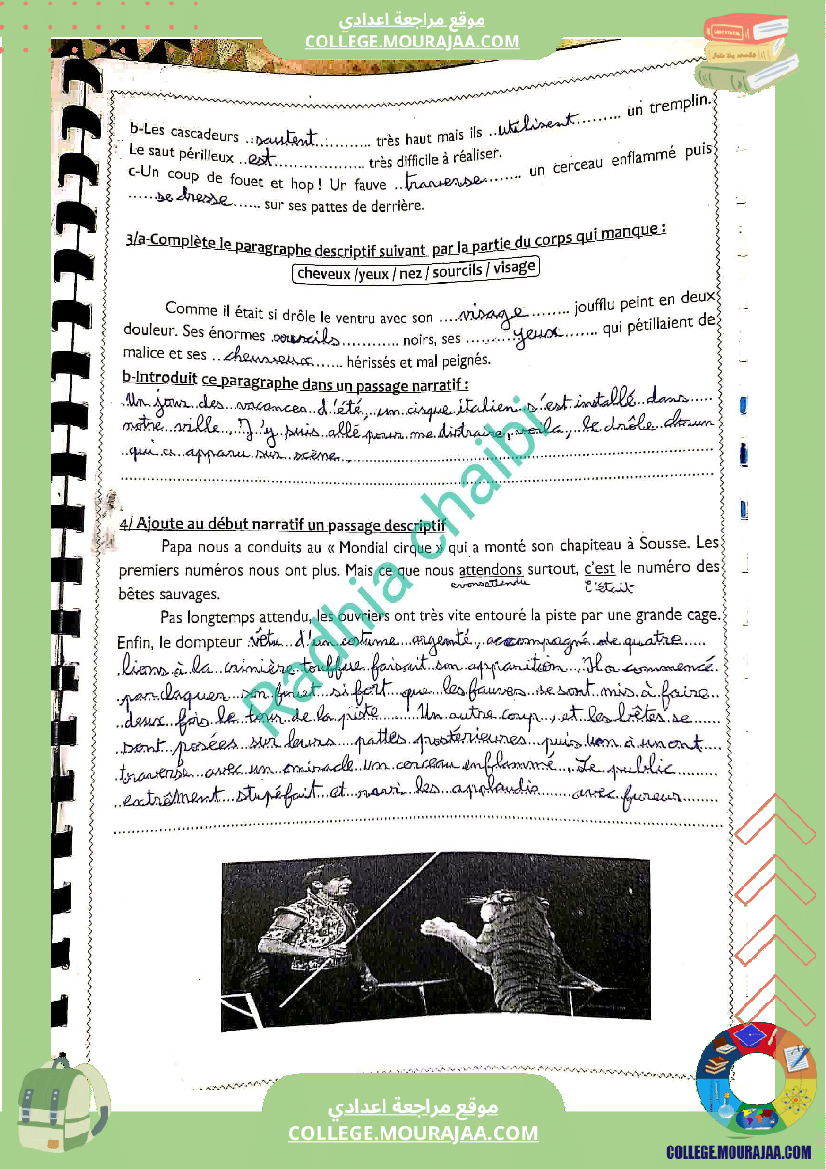 موقع مراجعة اعدادي
COLLEGE.MOURAJAA.COM
b-Les cascadeurs ..sautent............ très haut mais ils ..utilisent......... un tremplin.
Le saut périlleux ..est.................... très difficile à réaliser.
c-Un coup de fouet et hop ! Ur fauve ..traverse........ un cerceau enflammé puis
......se dresse...... sur ses pattes de derrière.
3/a-Complète le paragraphe descriptif suivant par la partie du corps qui manque :
cheveux /yeux / nez / sourcils / visage
Comme il était si drôle le ventru avec son ....visage........ joufflu peint en deux
douleur. Ses énormes sourcils............ noirs, ses .........yeux....... qui pétillaient de
malice et ses ..cheveux....... hérissés et mal peignés.
b-Introduit ce paragraphe dans un passage narratif :
Un jour des vacances d'été, un cisque italien s'est installé dans
notre ville, J'y suis allé pour me distraire, voila, le drôle clown
qui a apparu sur scène
4/ Ajoute au début narratif un passage descriptif
Papa nous a conduits au « Mondial cirque » qui a monté son chapiteau à Sousse. Les
premiers numéros nous ont plus. Mais ce que nous attendons surtout, c'est le numéro des
avons attendu l'était
bêtes sauvages.
Pas longtemps attendu, les ouvriers ont très vite entouré la piste par une grande cage.
Enfin, le dompteur vêtu d'un costume argenté, accompagné de quatre
lions à la crinière touffue faisait son apparition. Il a commencé
par claquer son fouet si fort que les fauves se sont mis à faire
deux fois le tour de la piste. Un autre coup, et les bêtes se
sont posées sur leurs pattes postérieures puis un à un ont
traversé avec un miracle un cerceau enflammé. Le public
extrêment stupéfait et ravi les applaudis avec fureur
Radhia chaibi
موقع مراجعة اعدادي
COLLEGE.MOURAJAA.COM
COLLEGE.MOURAJAA.COM